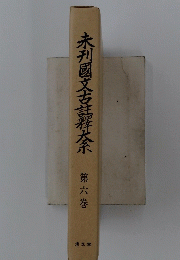 未刊國文古註釋大系
第六巻